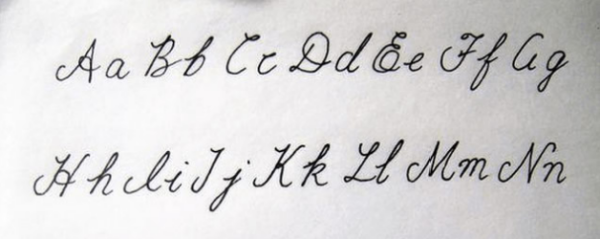 Aa Bb Cc Dd Ee Ff Gg
Hh Ii Jj Kk Ll Mm Nn